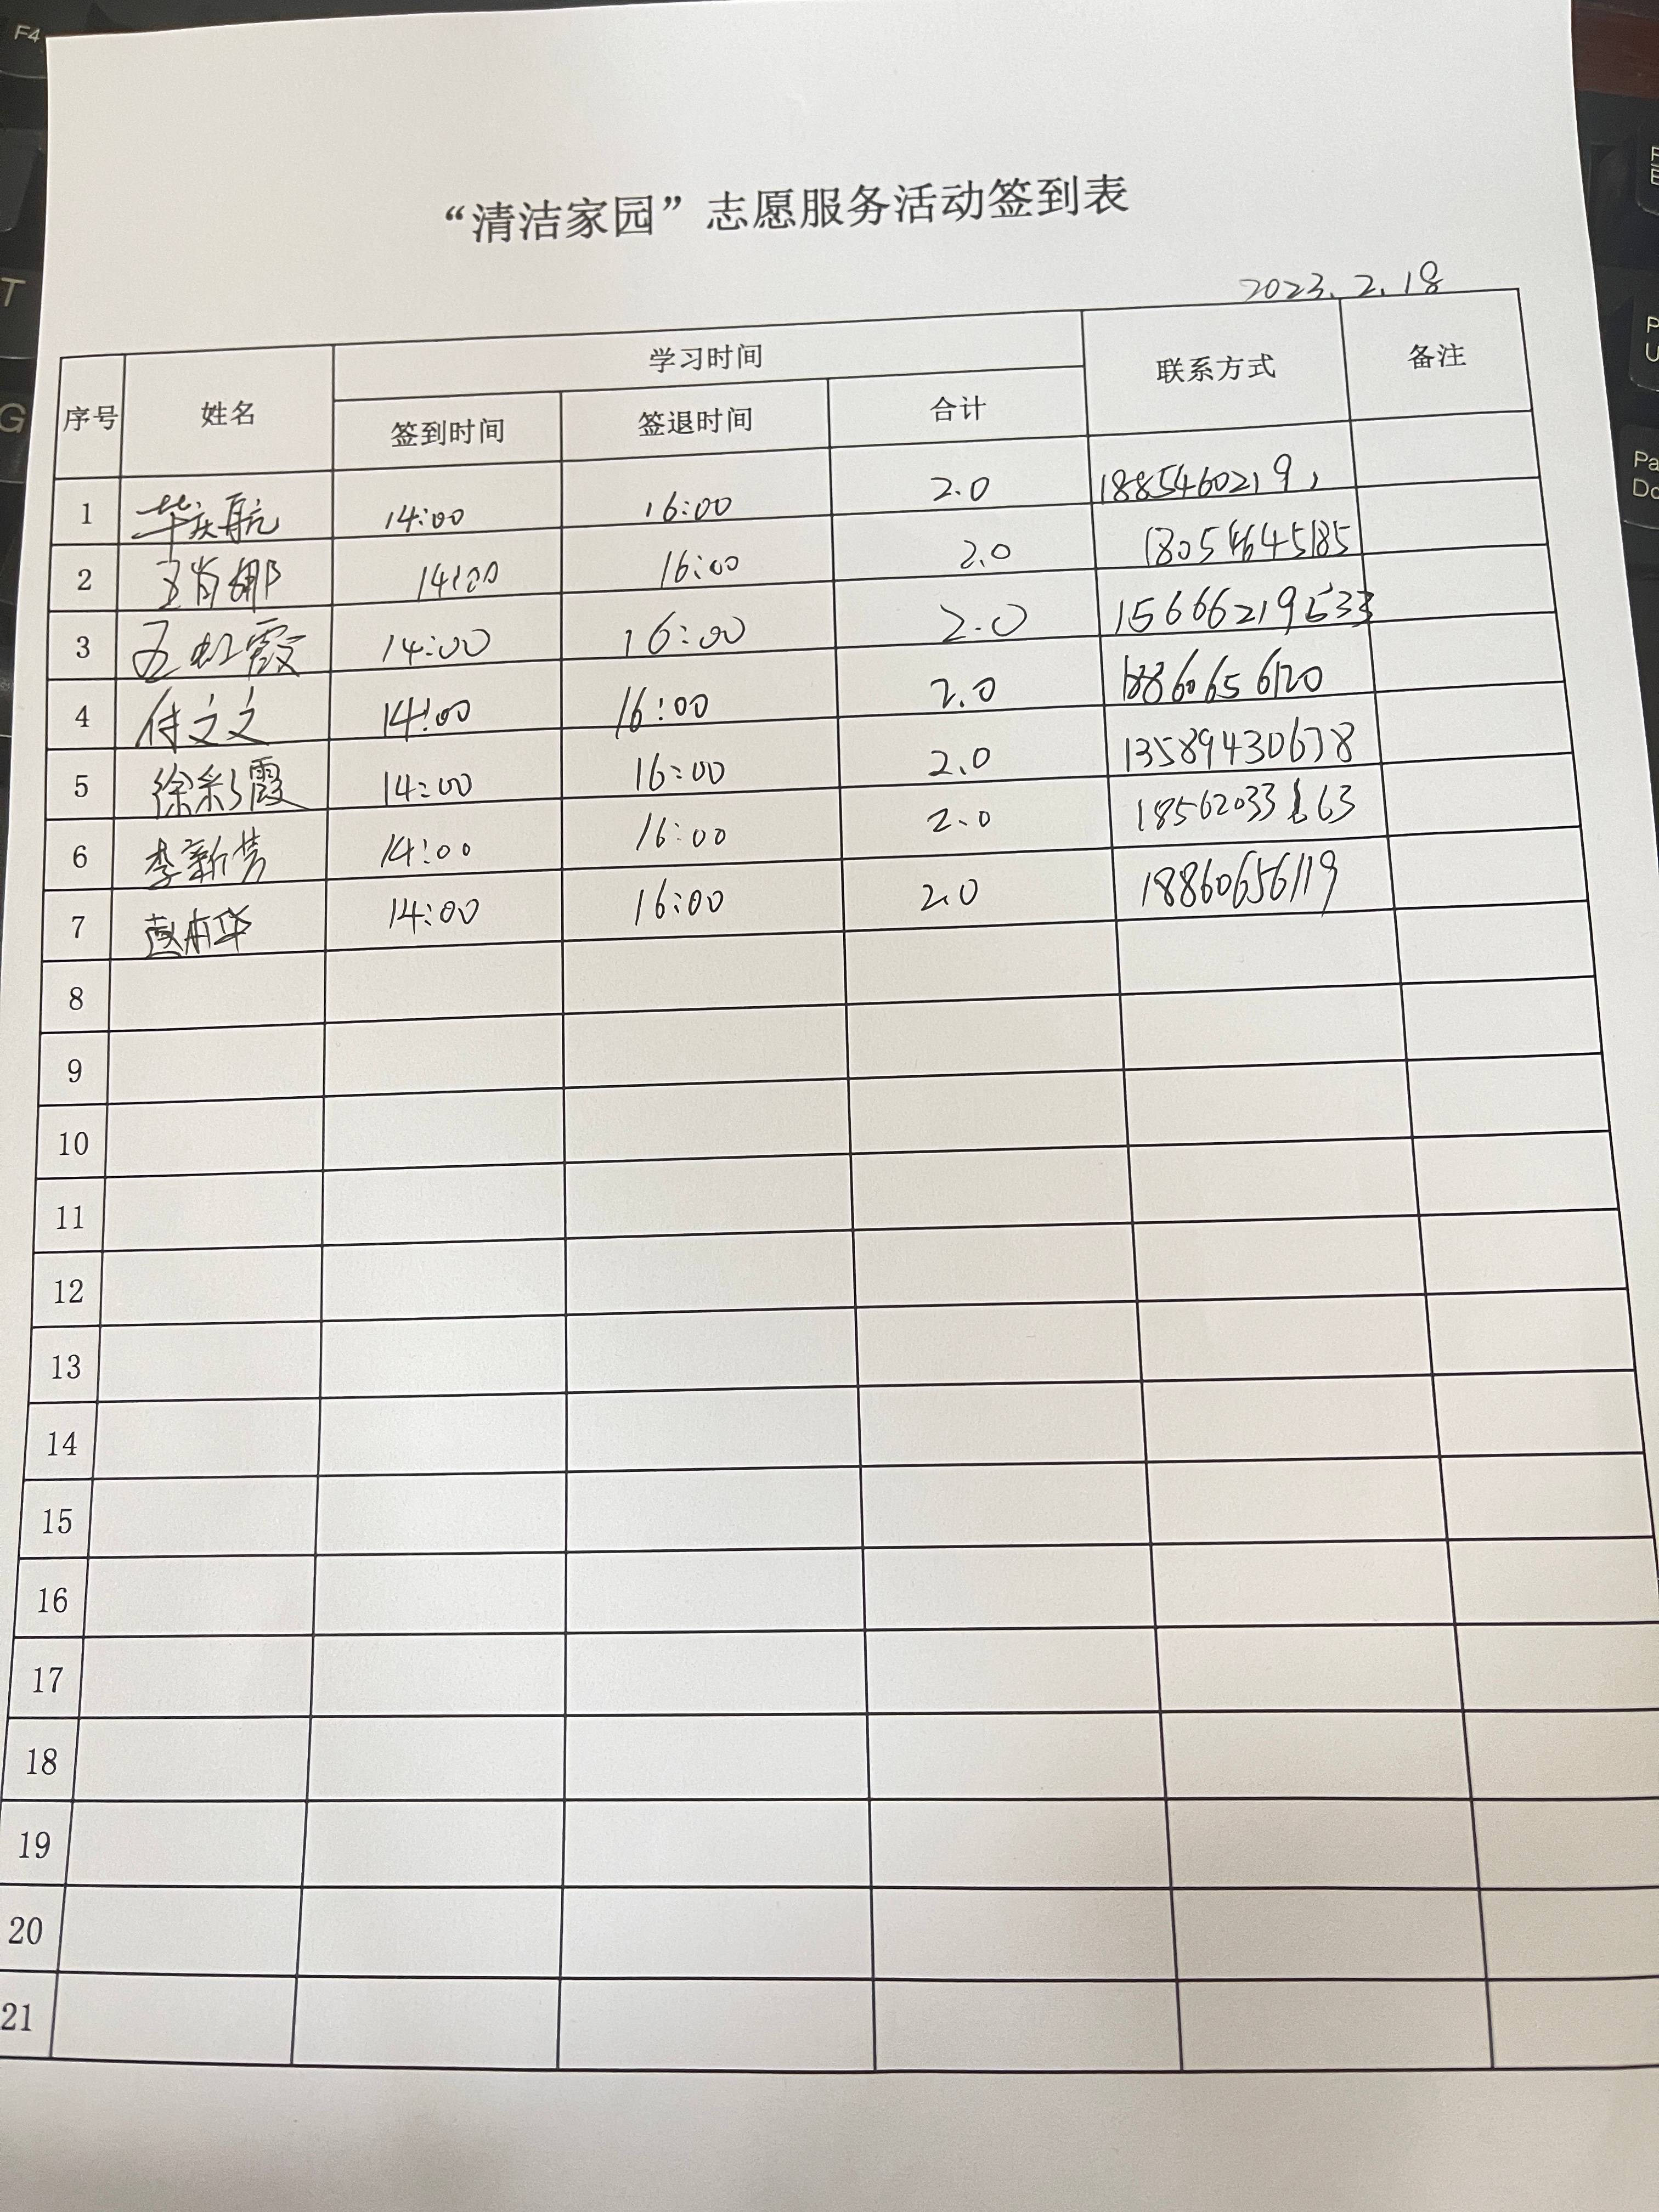 “清洁家园”志愿服务活动签到表
2023.2.18
序号 姓名 学习时间 联系方式 备注
签到时间 签退时间 合计
1 毕庆航 14:00 16:00 2.0 18854602191
2 14:00 16:00 2.0
3 王虹霞 14:00 16:00 2.0 15666219533
4 付文文 14:00 16:00 2.0 18860656120
5 徐彩霞 14:00 16:00 2.0 13589430678
6 李新芳 14:00 16:00 2.0
7 14:00 16:00 2.0 18860656119
8
9
10
11
12
13
14
15
16
17
18
19
20
21
F4
T
G